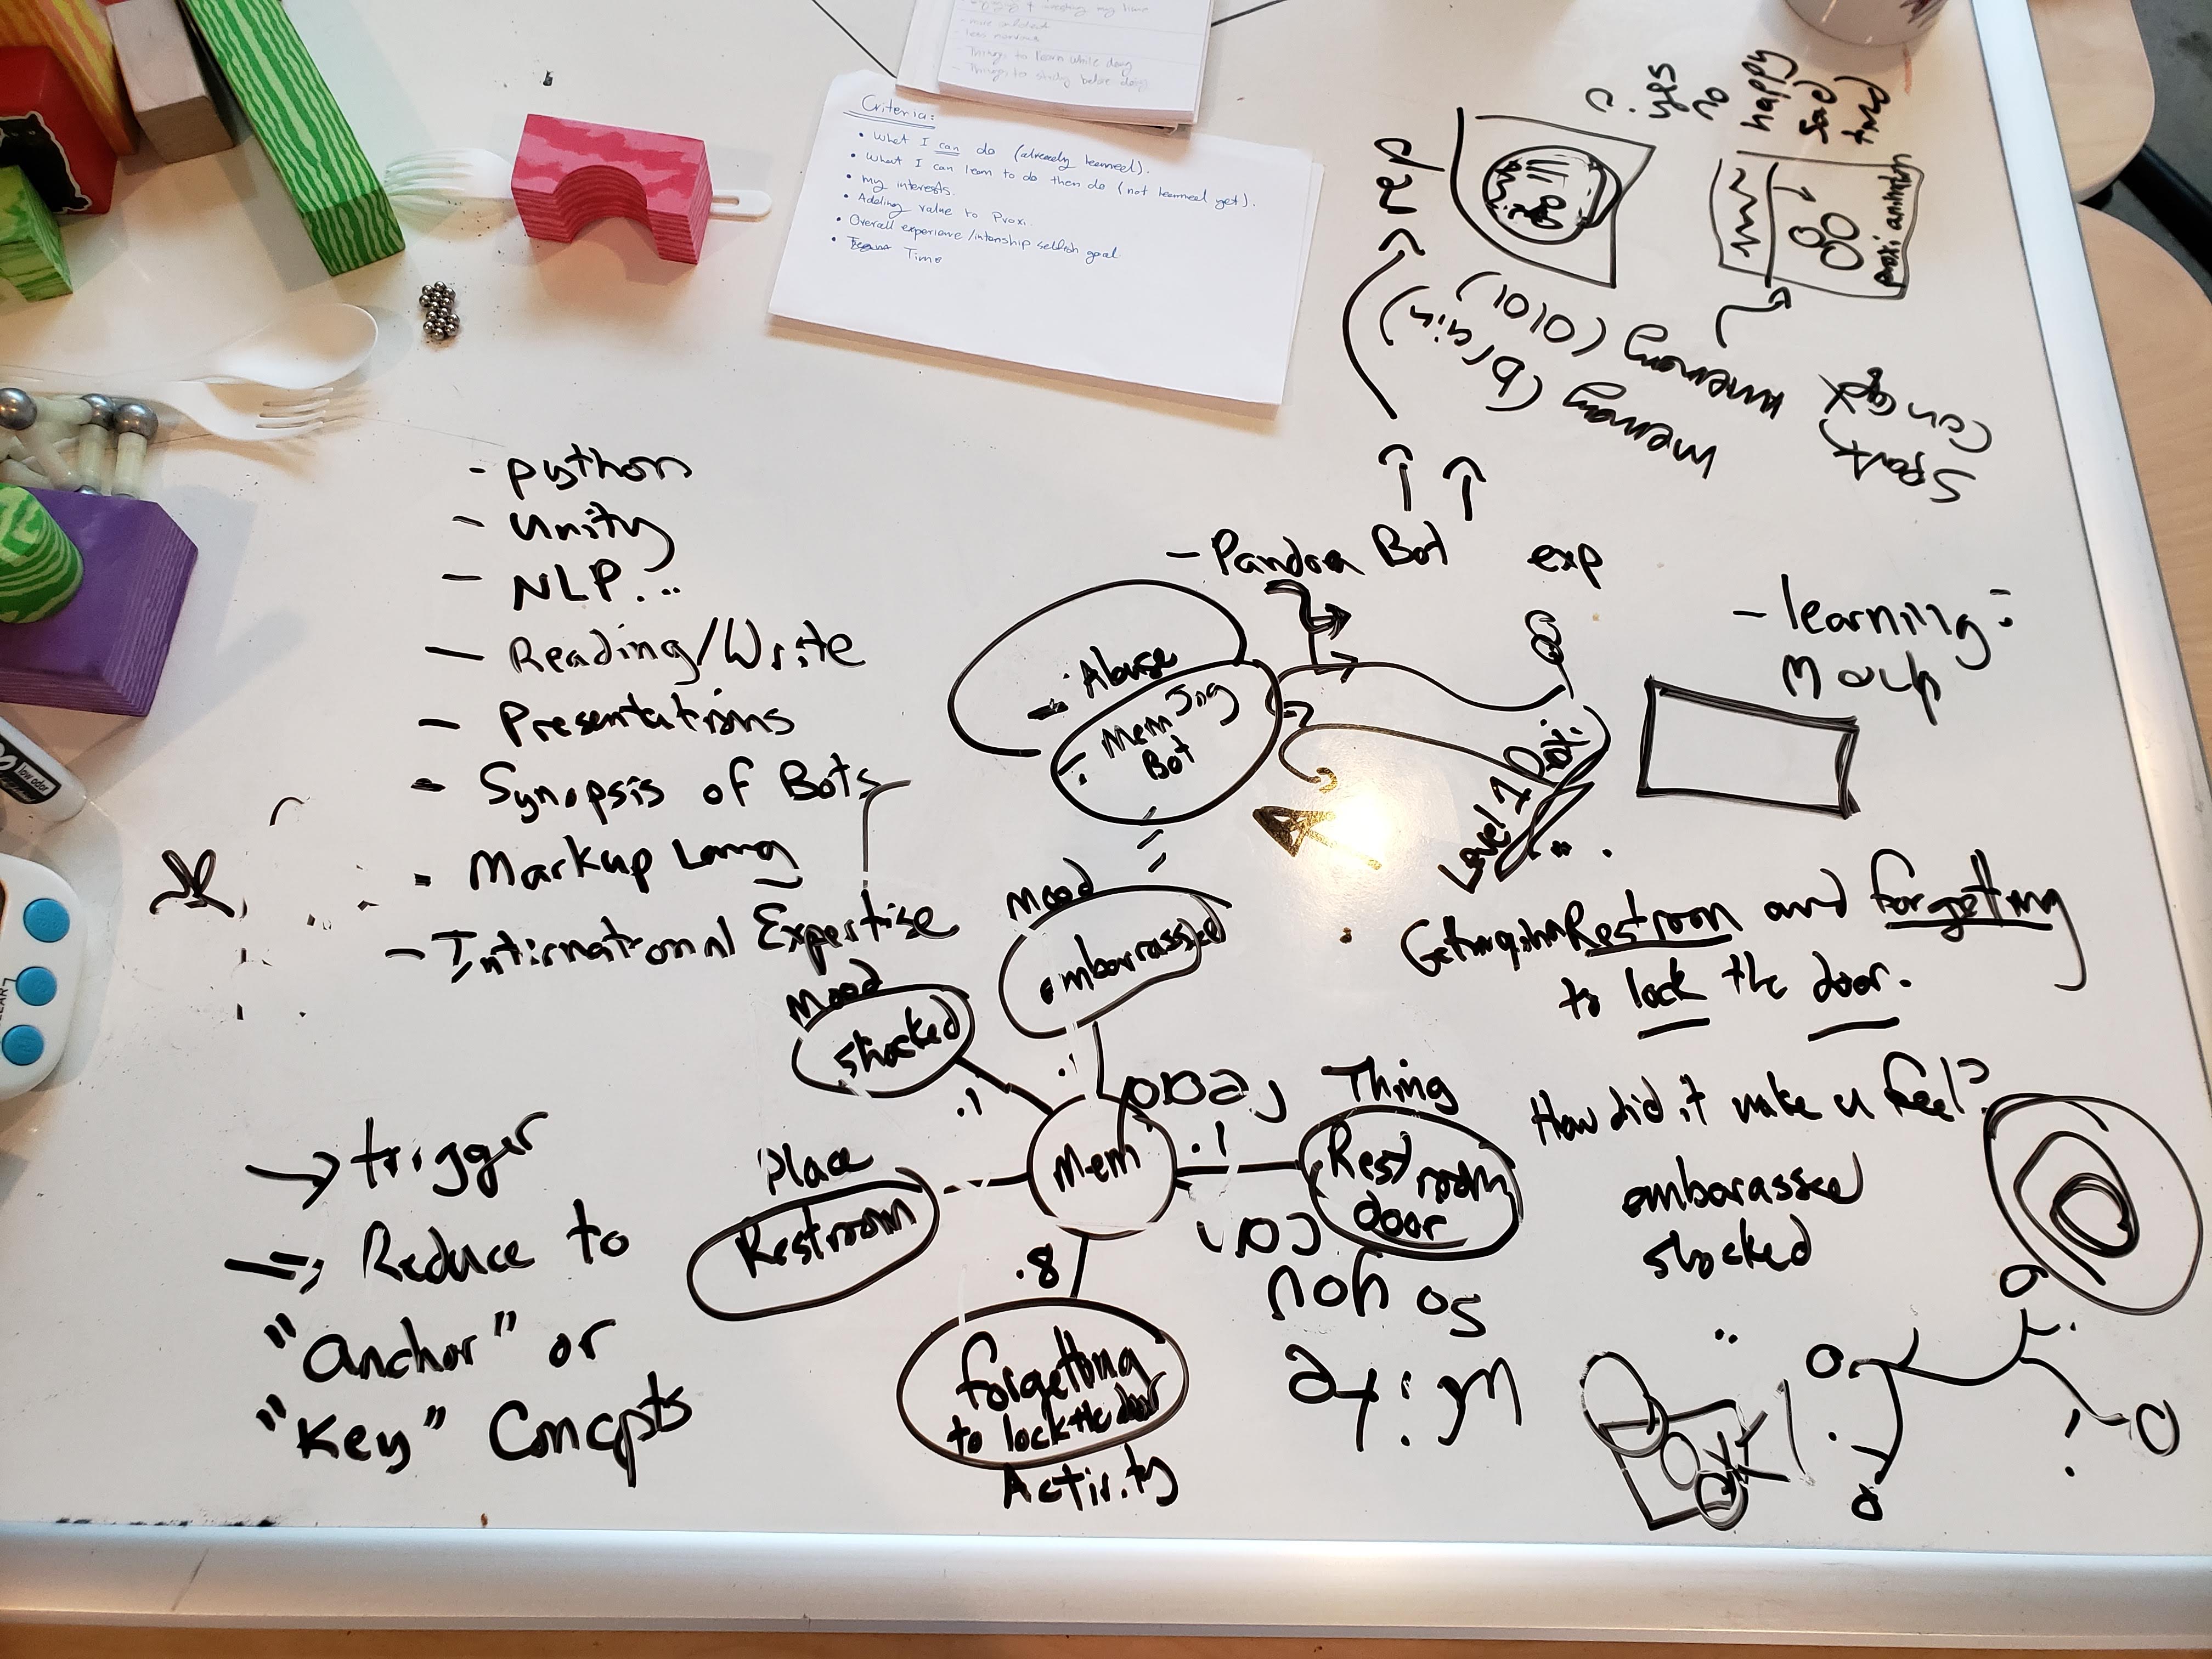 less routine
- Things to learn while doing
- Things to study before doing
Criteria:
• What I can do (already learned).
• What I can learn to do then do (not learned yet).
• my interests.
• Adding value to Proxi.
• Overall experience/internship selfish goal.
• Time
- python
- Unity
- NLP...
- Reading/Write
- Presentations
- Synopsis of Bots
- Markup Lang
- International Expertise
→ trigger
Reduce to
"Anchor" or
"Key" Concpts
rep
yes
no
happy
sad
proxi animation
memory (0101)
memory (brain)
Spark
- Pandora Bot
exp
- Abuse
Mem Jog
Bot
Level 1
- learning:
Mockup
Restroom and forgetting
to lock the door.
How did it make u feel?
embarassed
shocked
Mood
embarrassed
Mood
shocked
.1
.1
Mem
.1
Thing
Rest room
door
Place
Restroom
.8
forgetting
to lock the door
Activity
read
can
so you
write